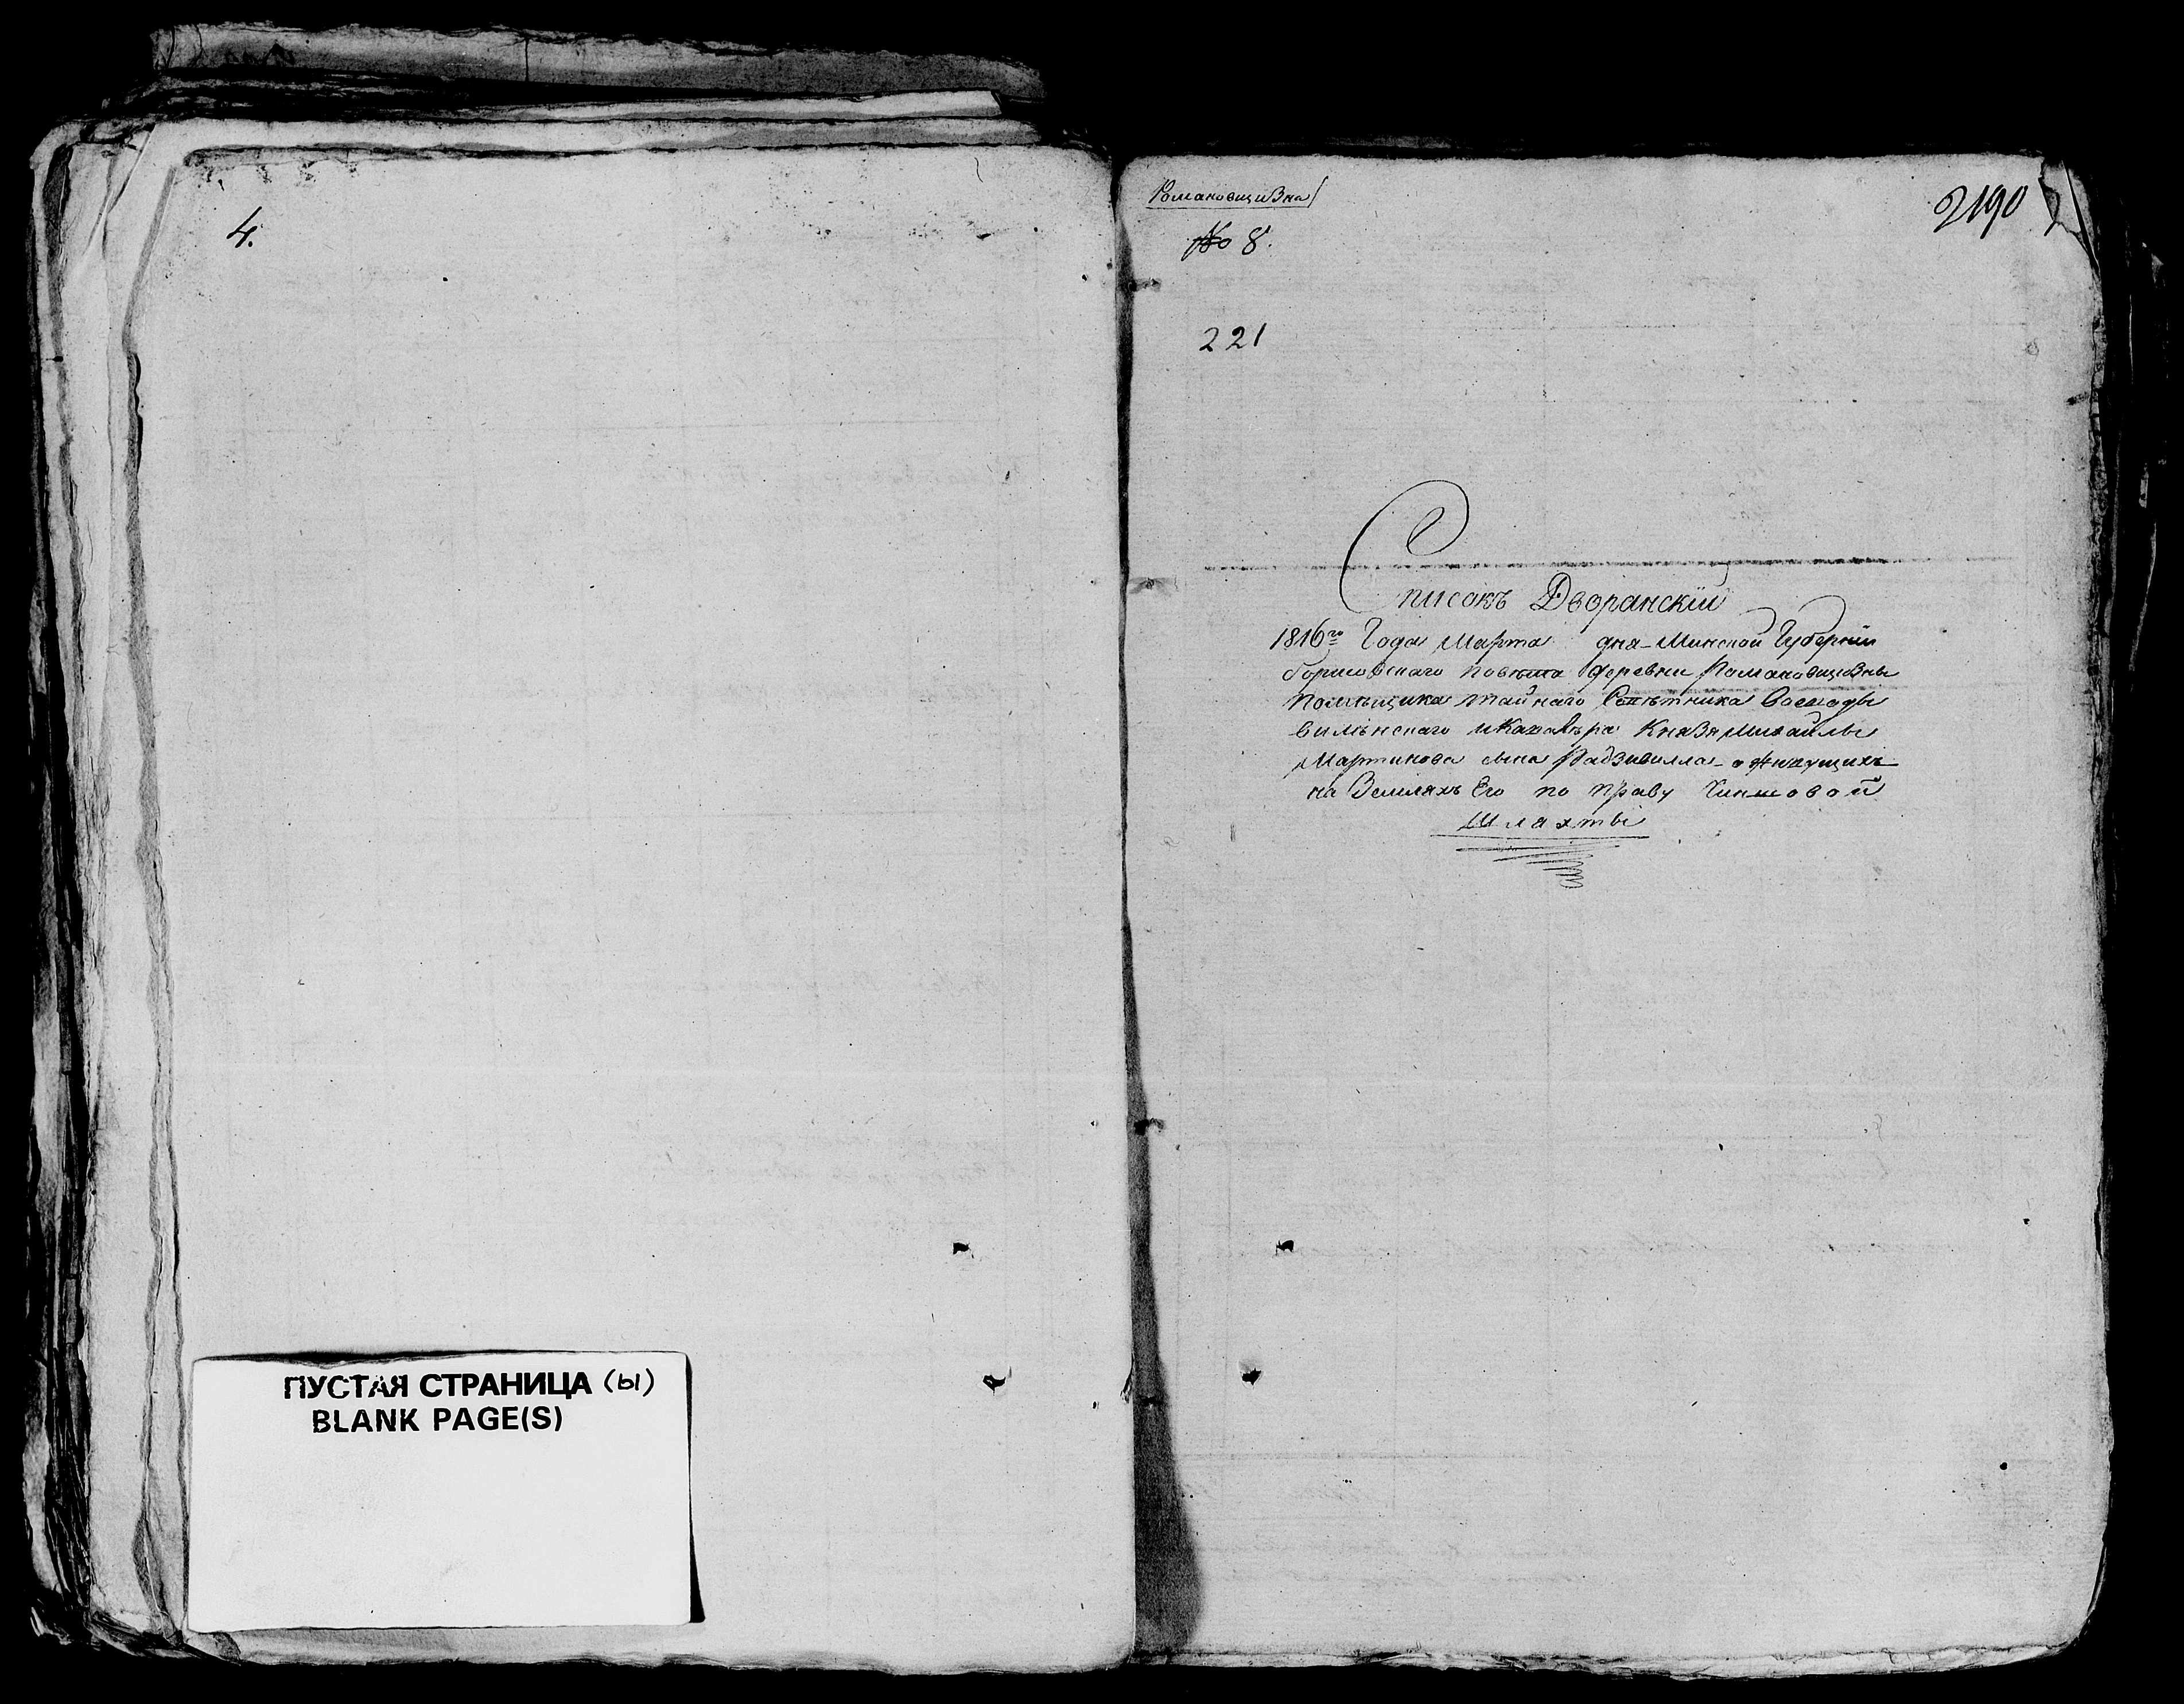 4.
ПУСТАЯ СТРАНИЦА (ы)
BLANK PAGE(S)
Романовщизна
№ 8.
2190
221
Списокъ Дворанскій
1816го Года Марта дня Минской Губерніи
борисовскаго повѣта деревни Романовщизны
помѣщика тайнаго Совѣтника Воеводы
виленскаго и Кавалѣра Князя Михаилы
Мартинова сына Радзивилла о живущихъ
на Земляхъ Его по праву Чиншовой
шляхты